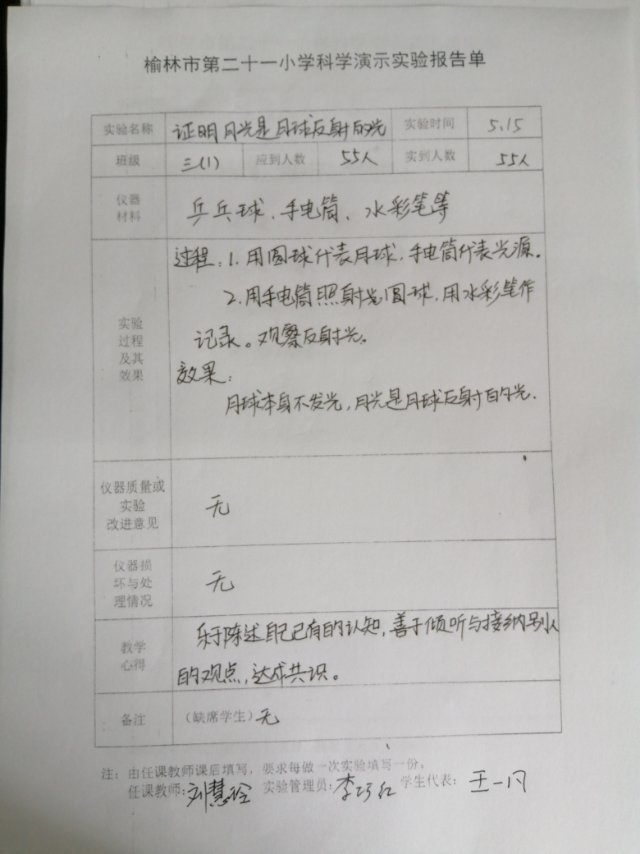 榆林市第二十一小学科学演示实验报告单
实验名称 证明月光是月球反射的光 实验时间 5.15
班级 三(1) 应到人数 55人 实到人数 55人
仪器
材料
乒乓球、手电筒、水彩笔等
实验
过程
及其
效果
过程:1.用圆球代表月球,手电筒代表光源。
2.用手电筒照射光圆球,用水彩笔作
记录。观察反射光。
效果:
月球本身不发光,月光是月球反射的光.
仪器质量或
实验
改进意见
无
仪器损
坏与处
理情况
无
教学
心得
乐于陈述自己已有的认知,善于倾听与接纳别人
的观点,达成共识。
备注 (缺席学生) 无
注:由任课教师课后填写,要求每做一次实验填写一份。
任课教师:刘慧玲 实验管理员:李巧红 学生代表:王一凡